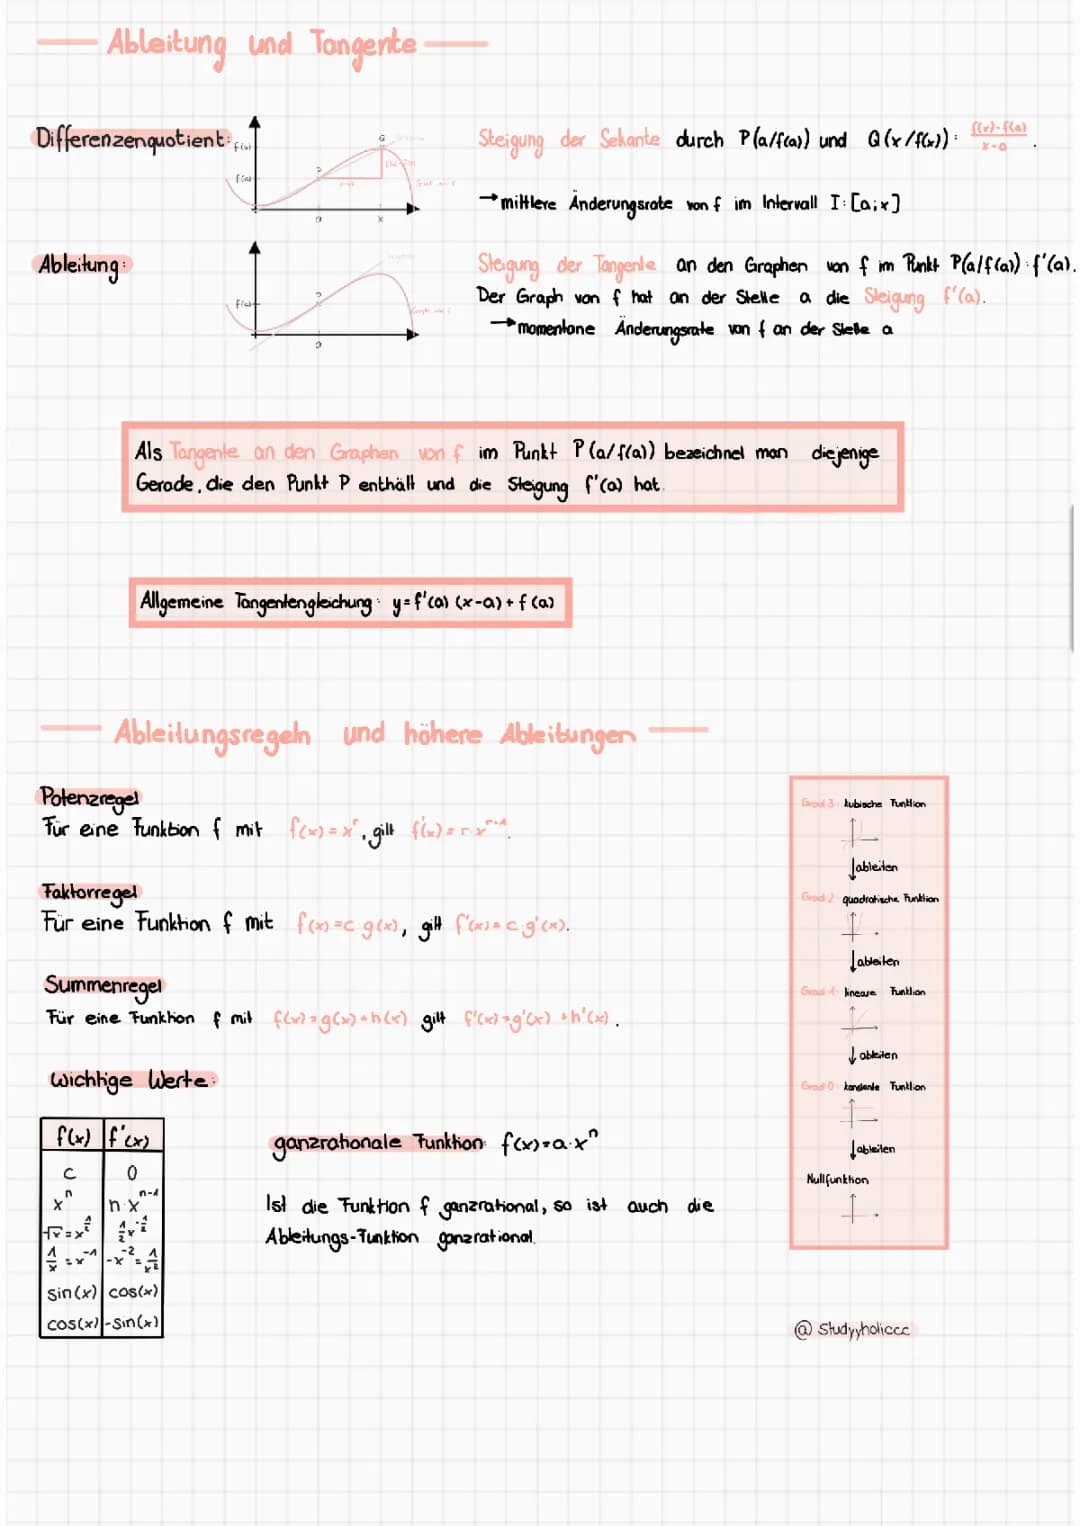 Ableitung und Tangente
Differenzenquotient:
f(x)
f(a)
P
Q
a
x
Steigung der Sekante durch P(a/f(a)) und Q(x/f(x)): f(x)-f(a) / x-a .
→ mittlere Änderungsrate von f im Intervall I:[a;x]
Ableitung:
f(a)
P
a
Steigung der Tangente an den Graphen von f im Punkt P(a/f(a)): f'(a).
Der Graph von f hat an der Stelle a die Steigung f'(a).
→ momentane Änderungsrate von f an der Stelle a
Als Tangente an den Graphen von f im Punkt P(a/f(a)) bezeichnet man diejenige
Gerade, die den Punkt P enthält und die Steigung f'(a) hat.
Allgemeine Tangentengleichung: y=f'(a) (x-a)+f(a)
Ableitungsregeln und höhere Ableitungen
Potenzregel
Für eine Funktion f mit f(x)=xʳ, gilt f'(x)=r·xʳ⁻¹.
Faktorregel
Für eine Funktion f mit f(x)=c·g(x), gilt f'(x)=c·g'(x).
Summenregel
Für eine Funktion f mit f(x)=g(x)+h(x) gilt f'(x)=g'(x)+h'(x).
Wichtige Werte:
f(x) f'(x)
c 0
xⁿ n·xⁿ⁻¹
√x=x^½ ½x^-½
1/x=x⁻¹ -x⁻²=1/x²
sin(x) cos(x)
cos(x) -sin(x)
ganzrationale Funktion: f(x)=a·xⁿ
Ist die Funktion f ganzrational, so ist auch die
Ableitungs-Funktion ganzrational.
Grad 3: kubische Funktion
↓ableiten
Grad 2: quadratische Funktion
↓ableiten
Grad 1: lineare Funktion
↓ableiten
Grad 0: konstante Funktion
↓ableiten
Nullfunktion
@studyyholiccc